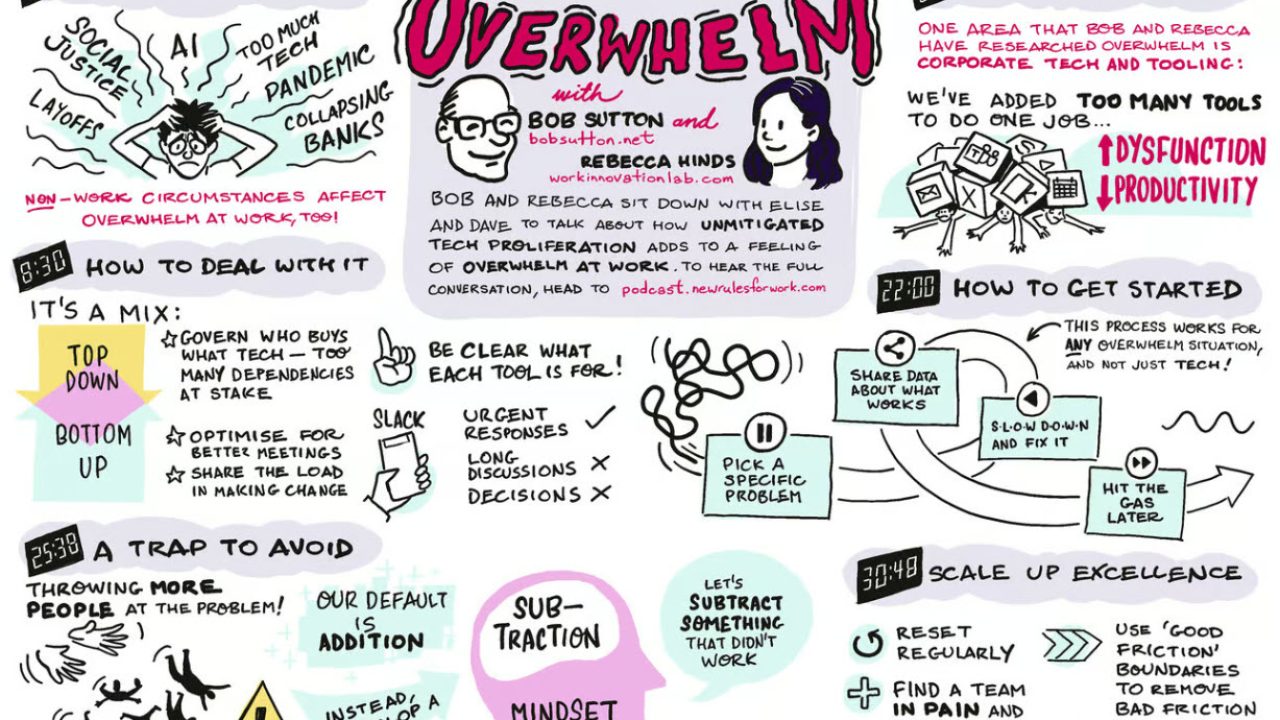 SOCIAL
JUSTICE
AI
TOO MUCH
TECH
PANDEMIC
LAYOFFS
COLLAPSING
BANKS
NON-WORK CIRCUMSTANCES AFFECT
OVERWHELM AT WORK, TOO!
OVERWHELM
with
BOB SUTTON and
bobsutton.net
REBECCA HINDS
workinnovationlab.com
BOB AND REBECCA SIT DOWN WITH ELISE
AND DAVE TO TALK ABOUT HOW UNMITIGATED
TECH PROLIFERATION ADDS TO A FEELING
OF OVERWHELM AT WORK. TO HEAR THE FULL
CONVERSATION, HEAD TO podcast.newrulesforwork.com
ONE AREA THAT BOB AND REBECCA
HAVE RESEARCHED OVERWHELM IS
CORPORATE TECH AND TOOLING:
WE'VE ADDED TOO MANY TOOLS
TO DO ONE JOB...
DYSFUNCTION
PRODUCTIVITY
8:30 HOW TO DEAL WITH IT
IT'S A MIX:
TOP
DOWN
BOTTOM
UP
GOVERN WHO BUYS
WHAT TECH — TOO
MANY DEPENDENCIES
AT STAKE
OPTIMISE FOR
BETTER MEETINGS
SHARE THE LOAD
IN MAKING CHANGE
BE CLEAR WHAT
EACH TOOL IS FOR!
SLACK
URGENT
RESPONSES
LONG
DISCUSSIONS
DECISIONS
22:00 HOW TO GET STARTED
THIS PROCESS WORKS FOR
ANY OVERWHELM SITUATION,
AND NOT JUST TECH!
PICK A
SPECIFIC
PROBLEM
SHARE DATA
ABOUT WHAT
WORKS
S·L·O·W D·O·W·N
AND FIX IT
HIT THE
GAS
LATER
25:38 A TRAP TO AVOID
THROWING MORE
PEOPLE AT THE PROBLEM!
OUR DEFAULT
IS
ADDITION
INSTEAD,
SUB-
TRACTION
MINDSET
LET'S
SUBTRACT
SOMETHING
THAT DIDN'T
WORK
30:48 SCALE UP EXCELLENCE
RESET
REGULARLY
FIND A TEAM
IN PAIN AND
USE 'GOOD
FRICTION'
BOUNDARIES
TO REMOVE
BAD FRICTION